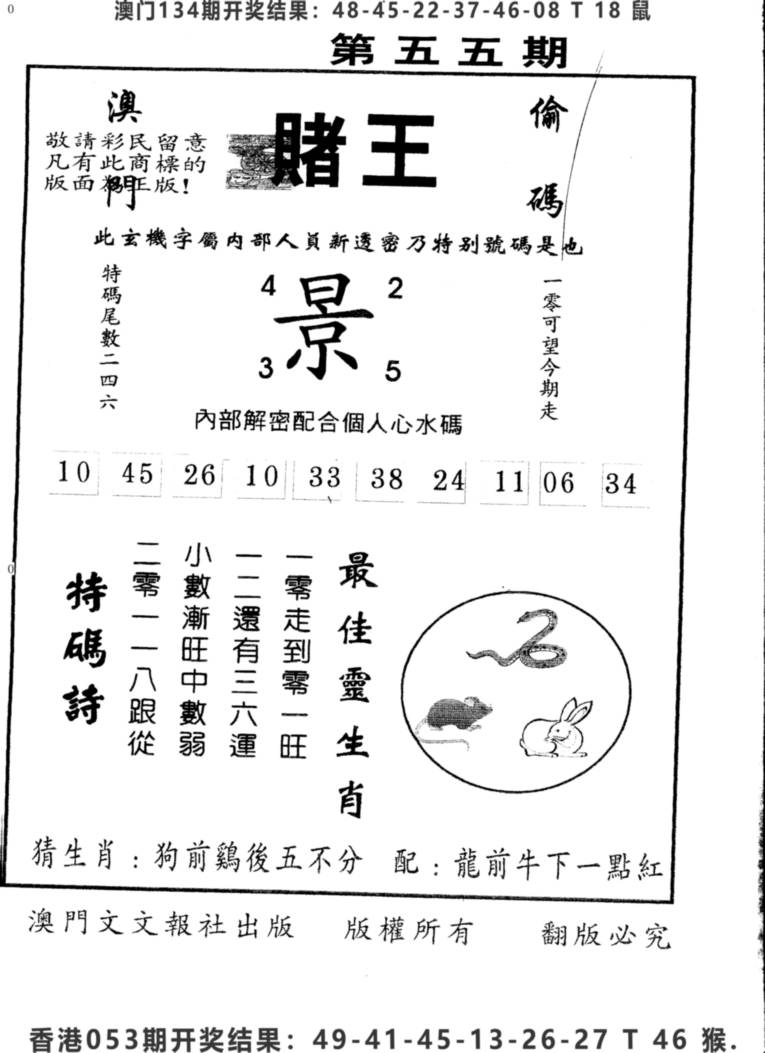 澳门134期开奖结果：48-45-22-37-46-08 T 18 鼠
第五五期
澳門
賭王
偷碼
敬請彩民留意
凡有此商標的
版面為正版！
此玄機字屬内部人員新透密乃特别號碼是也
特碼尾數二四六
4 2
景
3 5
一零可望今期走
內部解密配合個人心水碼
10 45 26 10 33 38 24 11 06 34
最佳靈生肖
一零走到零一旺
一二還有三六運
小數漸旺中數弱
二零一一八跟從
特碼詩
猜生肖：狗前鷄後五不分 配：龍前牛下一點紅
澳門文文報社出版 版權所有 翻版必究
香港053期开奖结果：49-41-45-13-26-27 T 46 猴.